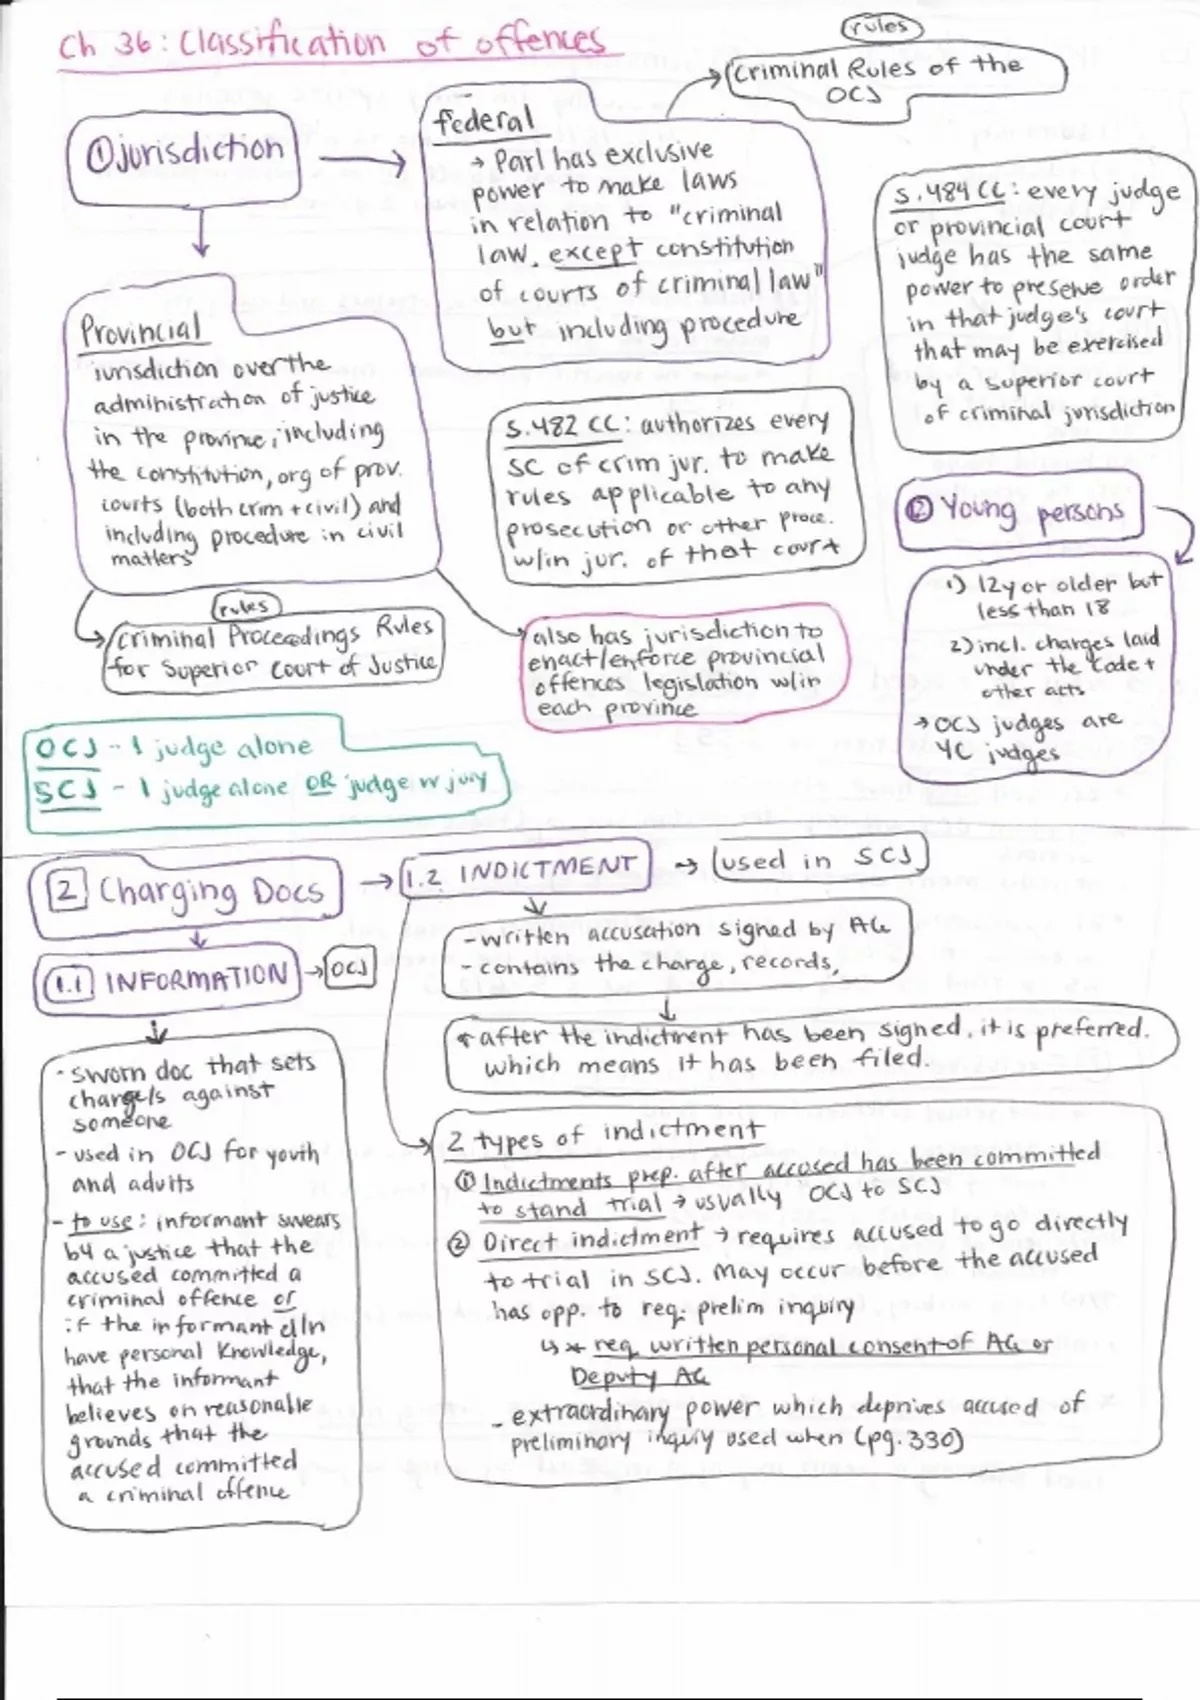 Ch 36: Classification of offences
rules
Criminal Rules of the
OCJ
① jurisdiction
federal
→ Parl has exclusive
power to make laws
in relation to "criminal
law, except constitution
of courts of criminal law"
but including procedure
S. 484 CC: every judge
or provincial court
judge has the same
power to preserve order
in that judge's court
that may be exercised
by a superior court
of criminal jurisdiction
Provincial
jurisdiction over the
administration of justice
in the province, including
the constitution, org of prov.
courts (both crim + civil) and
including procedure in civil
matters
S. 482 CC: authorizes every
SC of crim jur. to make
rules applicable to any
prosecution or other proce.
w/in jur. of that court
② Young persons
1) 12y or older but
less than 18
2) incl. charges laid
under the Code +
other acts
→ OCJ judges are
YC judges
rules
Criminal Proceedings Rules
for Superior Court of Justice
also has jurisdiction to
enact/enforce provincial
offences legislation w/in
each province
OCJ - 1 judge alone
SCJ - 1 judge alone OR judge w jury
2 Charging Docs
1.2 INDICTMENT
used in SCJ
- written accusation signed by AG
- contains the charge, records,
1.1 INFORMATION
OCJ
* after the indictment has been signed, it is preferred.
which means it has been filed.
- sworn doc that sets
charge/s against
someone
- used in OCJ for youth
and adults
- to use: informant swears
by a justice that the
accused committed a
criminal offence or
if the informant d/n
have personal knowledge,
that the informant
believes on reasonable
grounds that the
accused committed
a criminal offence
2 types of indictment
① Indictments prep. after accused has been committed
to stand trial → usually OCJ to SCJ
② Direct indictment → requires accused to go directly
to trial in SCJ. May occur before the accused
has opp. to req. prelim inquiry
↳ * req written personal consent of AG or
Deputy AG
- extraordinary power which deprives accused of
preliminary inquiry used when (pg. 330)